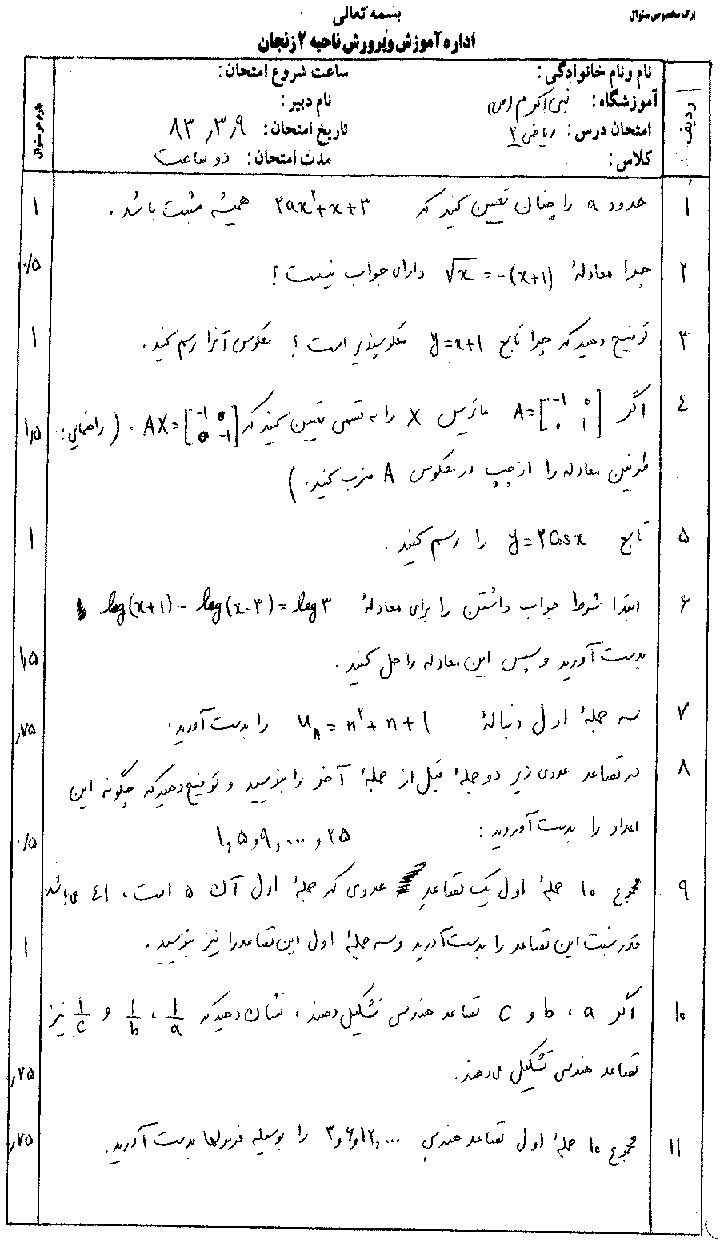 برگ مخصوص سئوال
بسمه تعالی
اداره آموزش و پرورش ناحیه ۲ زنجان
نام ونام خانوادگی: ساعت شروع امتحان:
آموزشگاه: نبی اکرم (ص) نام دبیر:
امتحان درس: ریاضی ۲ تاریخ امتحان: ۸۳٫۳٫۹
کلاس: مدت امتحان: دو ساعت
ردیف
۱ حدود a را چنان تعیین کنید که ۲ax²+x+۳ همیشه مثبت باشد. ۱
۲ چرا معادلهٔ √x = -(x+1) دارای جواب نیست؟ ۰/۵
۳ توضیح دهید که چرا تابع y=x+1 معکوسپذیر است؟ معکوس آنرا رسم کنید. ۱
٤ اگر A=[-1 0; 0 1] ماتریس X را به قسمی تعیین کنید که AX=[-1 0; 0 -1]. (راهنمایی: ۱/۵
طرفین معادله را از چپ در معکوس A ضرب کنید.)
۵ تابع y=۲Cosx را رسم کنید. ۱
۶ ابتدا شرط جواب داشتن را برای معادلهٔ log(x+1) - log(x-۳) = log۳
بدست آورید و سپس این معادله را حل کنید. ۱/۵
۷ سه جملهٔ اول دنبالهٔ uₙ = n²+n+1 را بدست آورید. ٫۷۵
۸ در تصاعد عددی زیر دو جملهٔ قبل از جملهٔ آخر را بنویسید و توضیح دهید که چگونه این
اعداد را بدست آوردید: ۱, ۵, ۹, ..., ۲۵ ۰/۵
۹ مجموع ۱۰ جملهٔ اول یک تصاعد عددی که جملهٔ اول آن ۵ است، ٤۱ می‌باشد
قدر نسبت این تصاعد را بدست آورید و سه جملهٔ اول این تصاعد را نیز بنویسید. ۱
۱۰ اگر a، b و c تصاعد هندسی تشکیل دهند، نشان دهید که 1/a، 1/b و 1/c نیز
تصاعد هندسی تشکیل می‌دهند. ٫۷۵
۱۱ مجموع ۱۰ جملهٔ اول تصاعد هندسی ۳, ۶, ۱۲, ... را بوسیله فرمولها بدست آورید. ٫۷۵